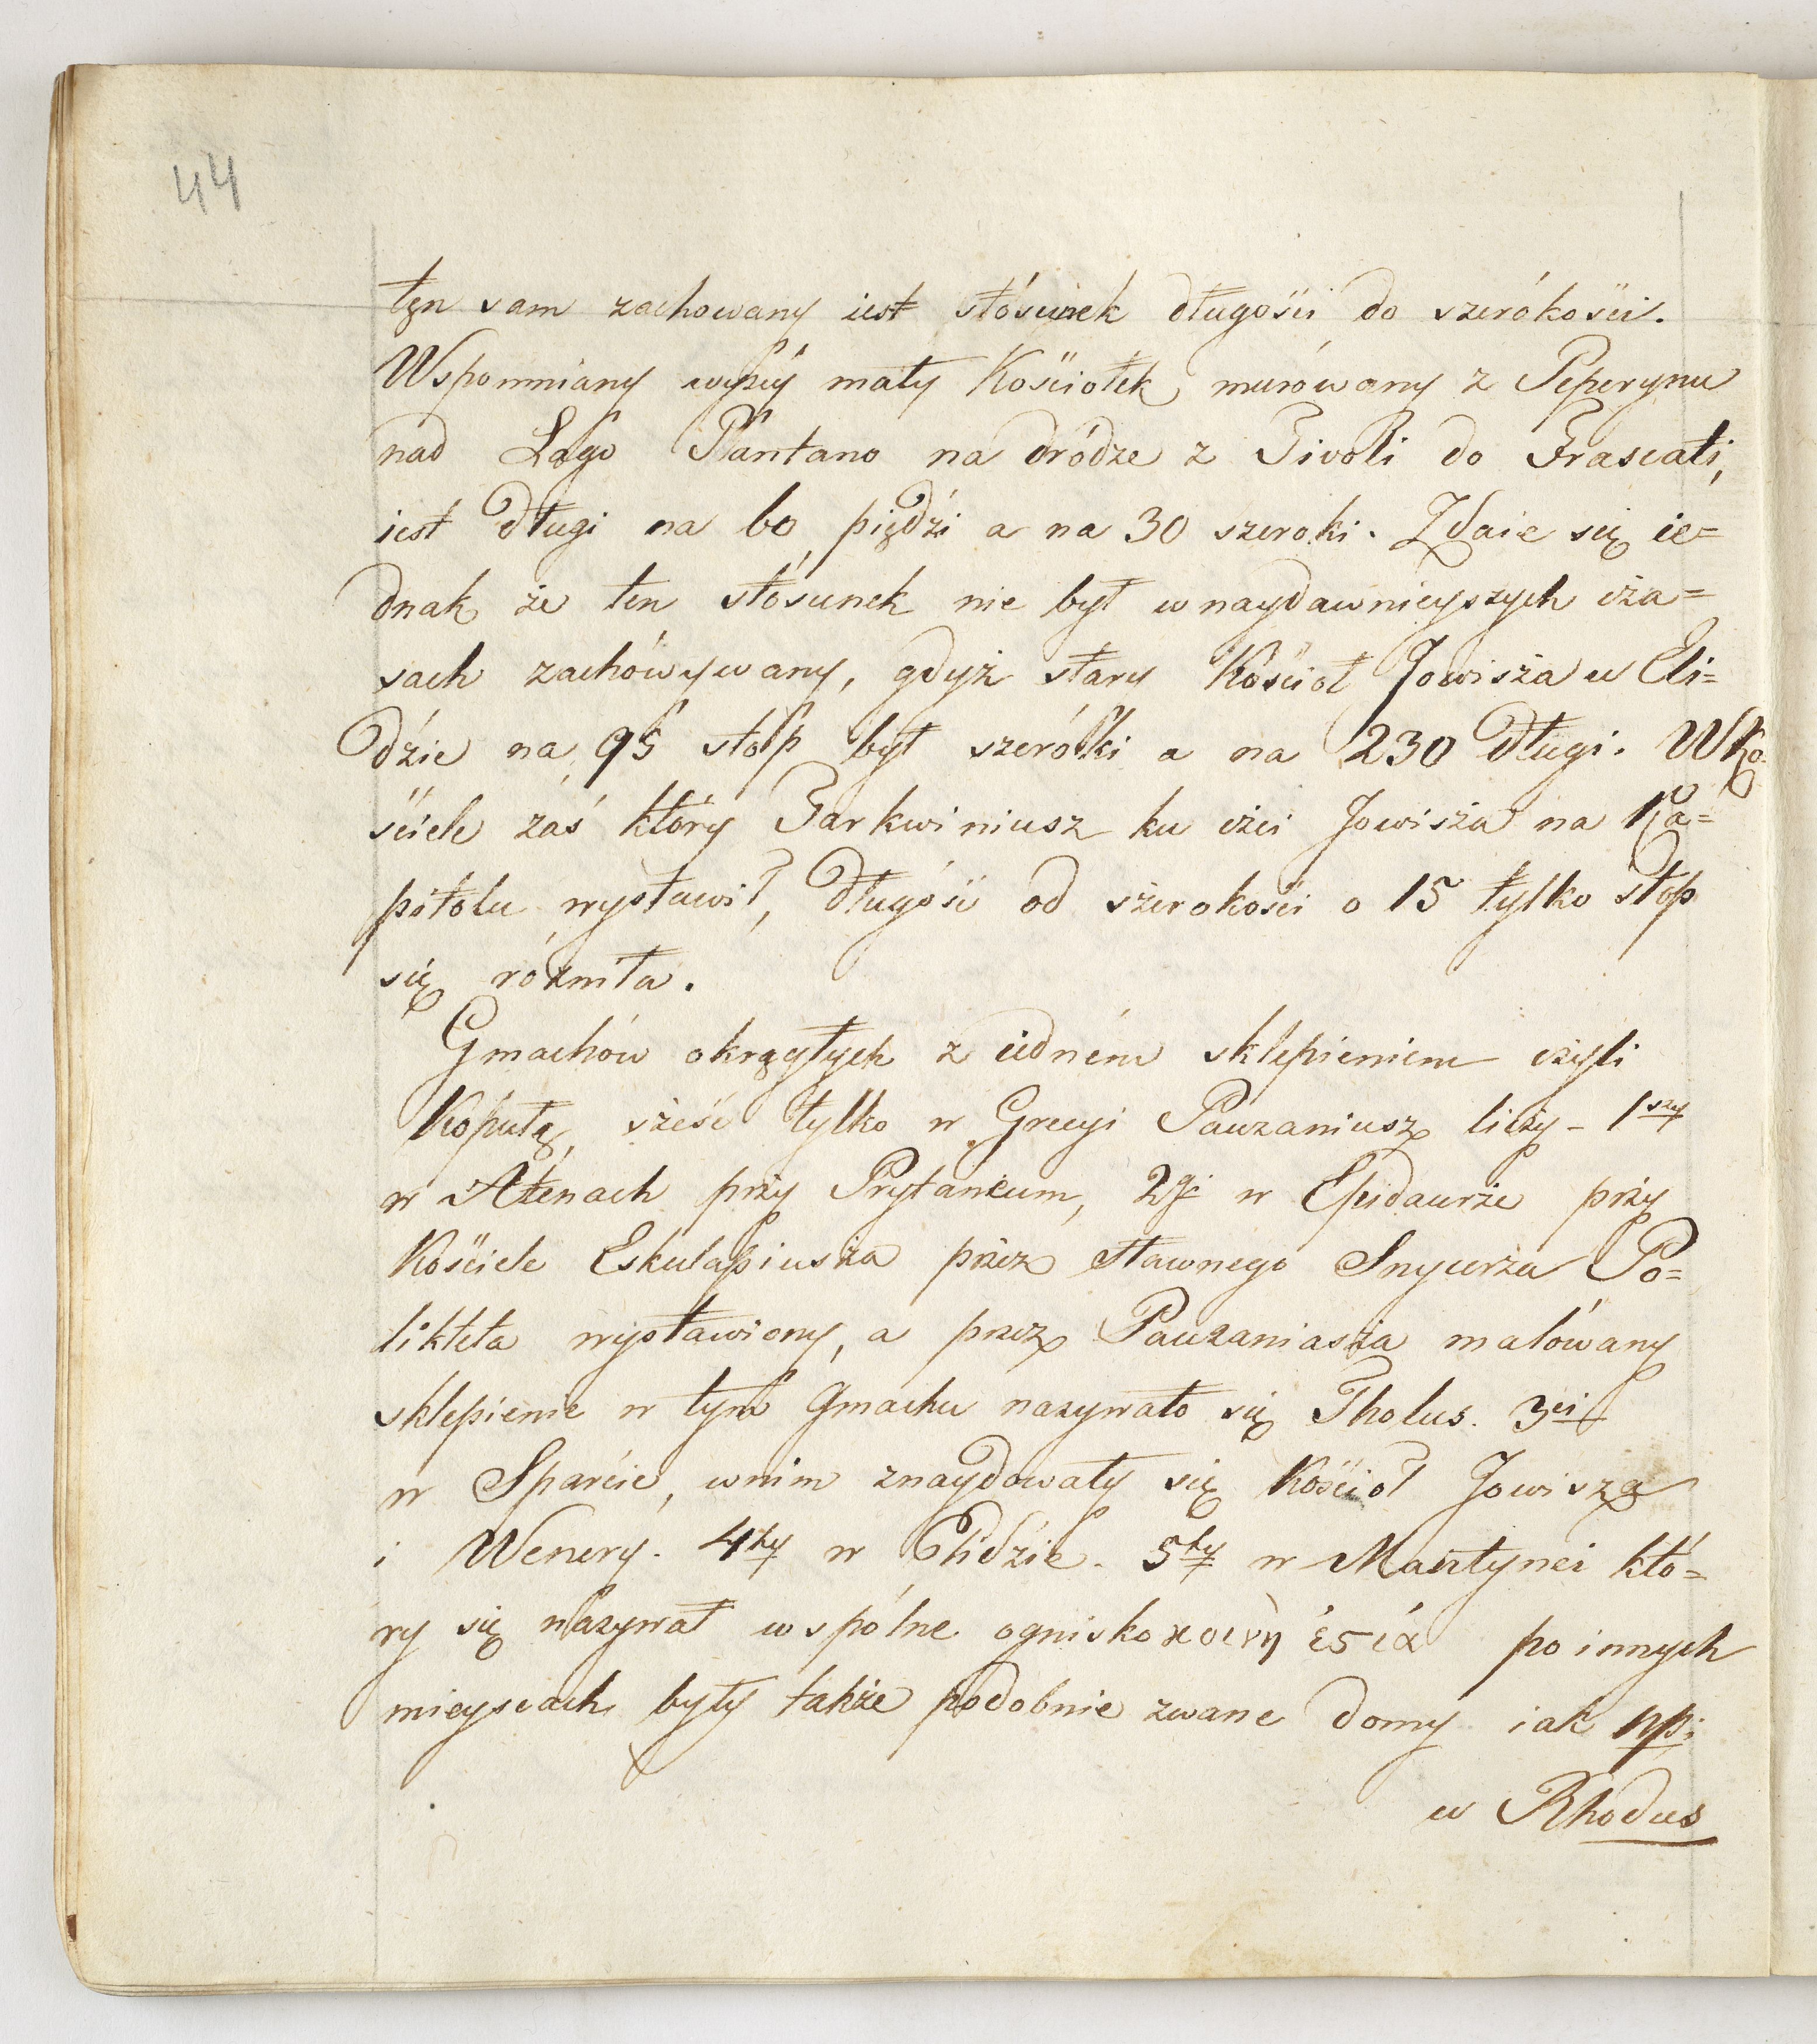 44
ten sam zachowany iest stósunek długości do szerókości.
Wspomniany wyżéy mały Kościołek murówany z Peperynu
nad Lago Pantano na dródze z Tivoli do Frascati,
iest długi na 60 piędzi a na 30 szeroki. Zdaie się ie=
dnak że ten stósunek nie był w naydawnieyszych cza=
sach zachówywany, gdyż stary Kościoł Jowisza w Eli=
dzie na 95 stóp był szeróki a na 230 długi. W Ko=
ściele zaś który Tarkwiniusz ku czci Jowisza na Ka=
pitolu wystawił, długość od szerokości o 15 tylko stop
się różniła.
Gmachów okrągłych z iedném sklepieniem czyli
Kopułą, sześć tylko w Grecyi Pauzaniusz liczy - 1szy
w Atenach przy Prytaneum, 2gi w Epidaurze przy
Kościele Eskulapiusza przez sławnego Snycerza Po=
likteta wystawiony, a przez Pauzaniasza malówany
sklepienie w tym Gmachu nazywało się Tholus. 3ci
w Sparcie, w nim znaydowały się Kościoł Jowisza
i Wenery. 4ty w Elidzie. 5ty w Mantynei któ=
ry się nazywał wspólne ognisko κοινὴ ἑϛία po innych
mieyscach były także podobnie zwane domy iak np:
w Rhodus